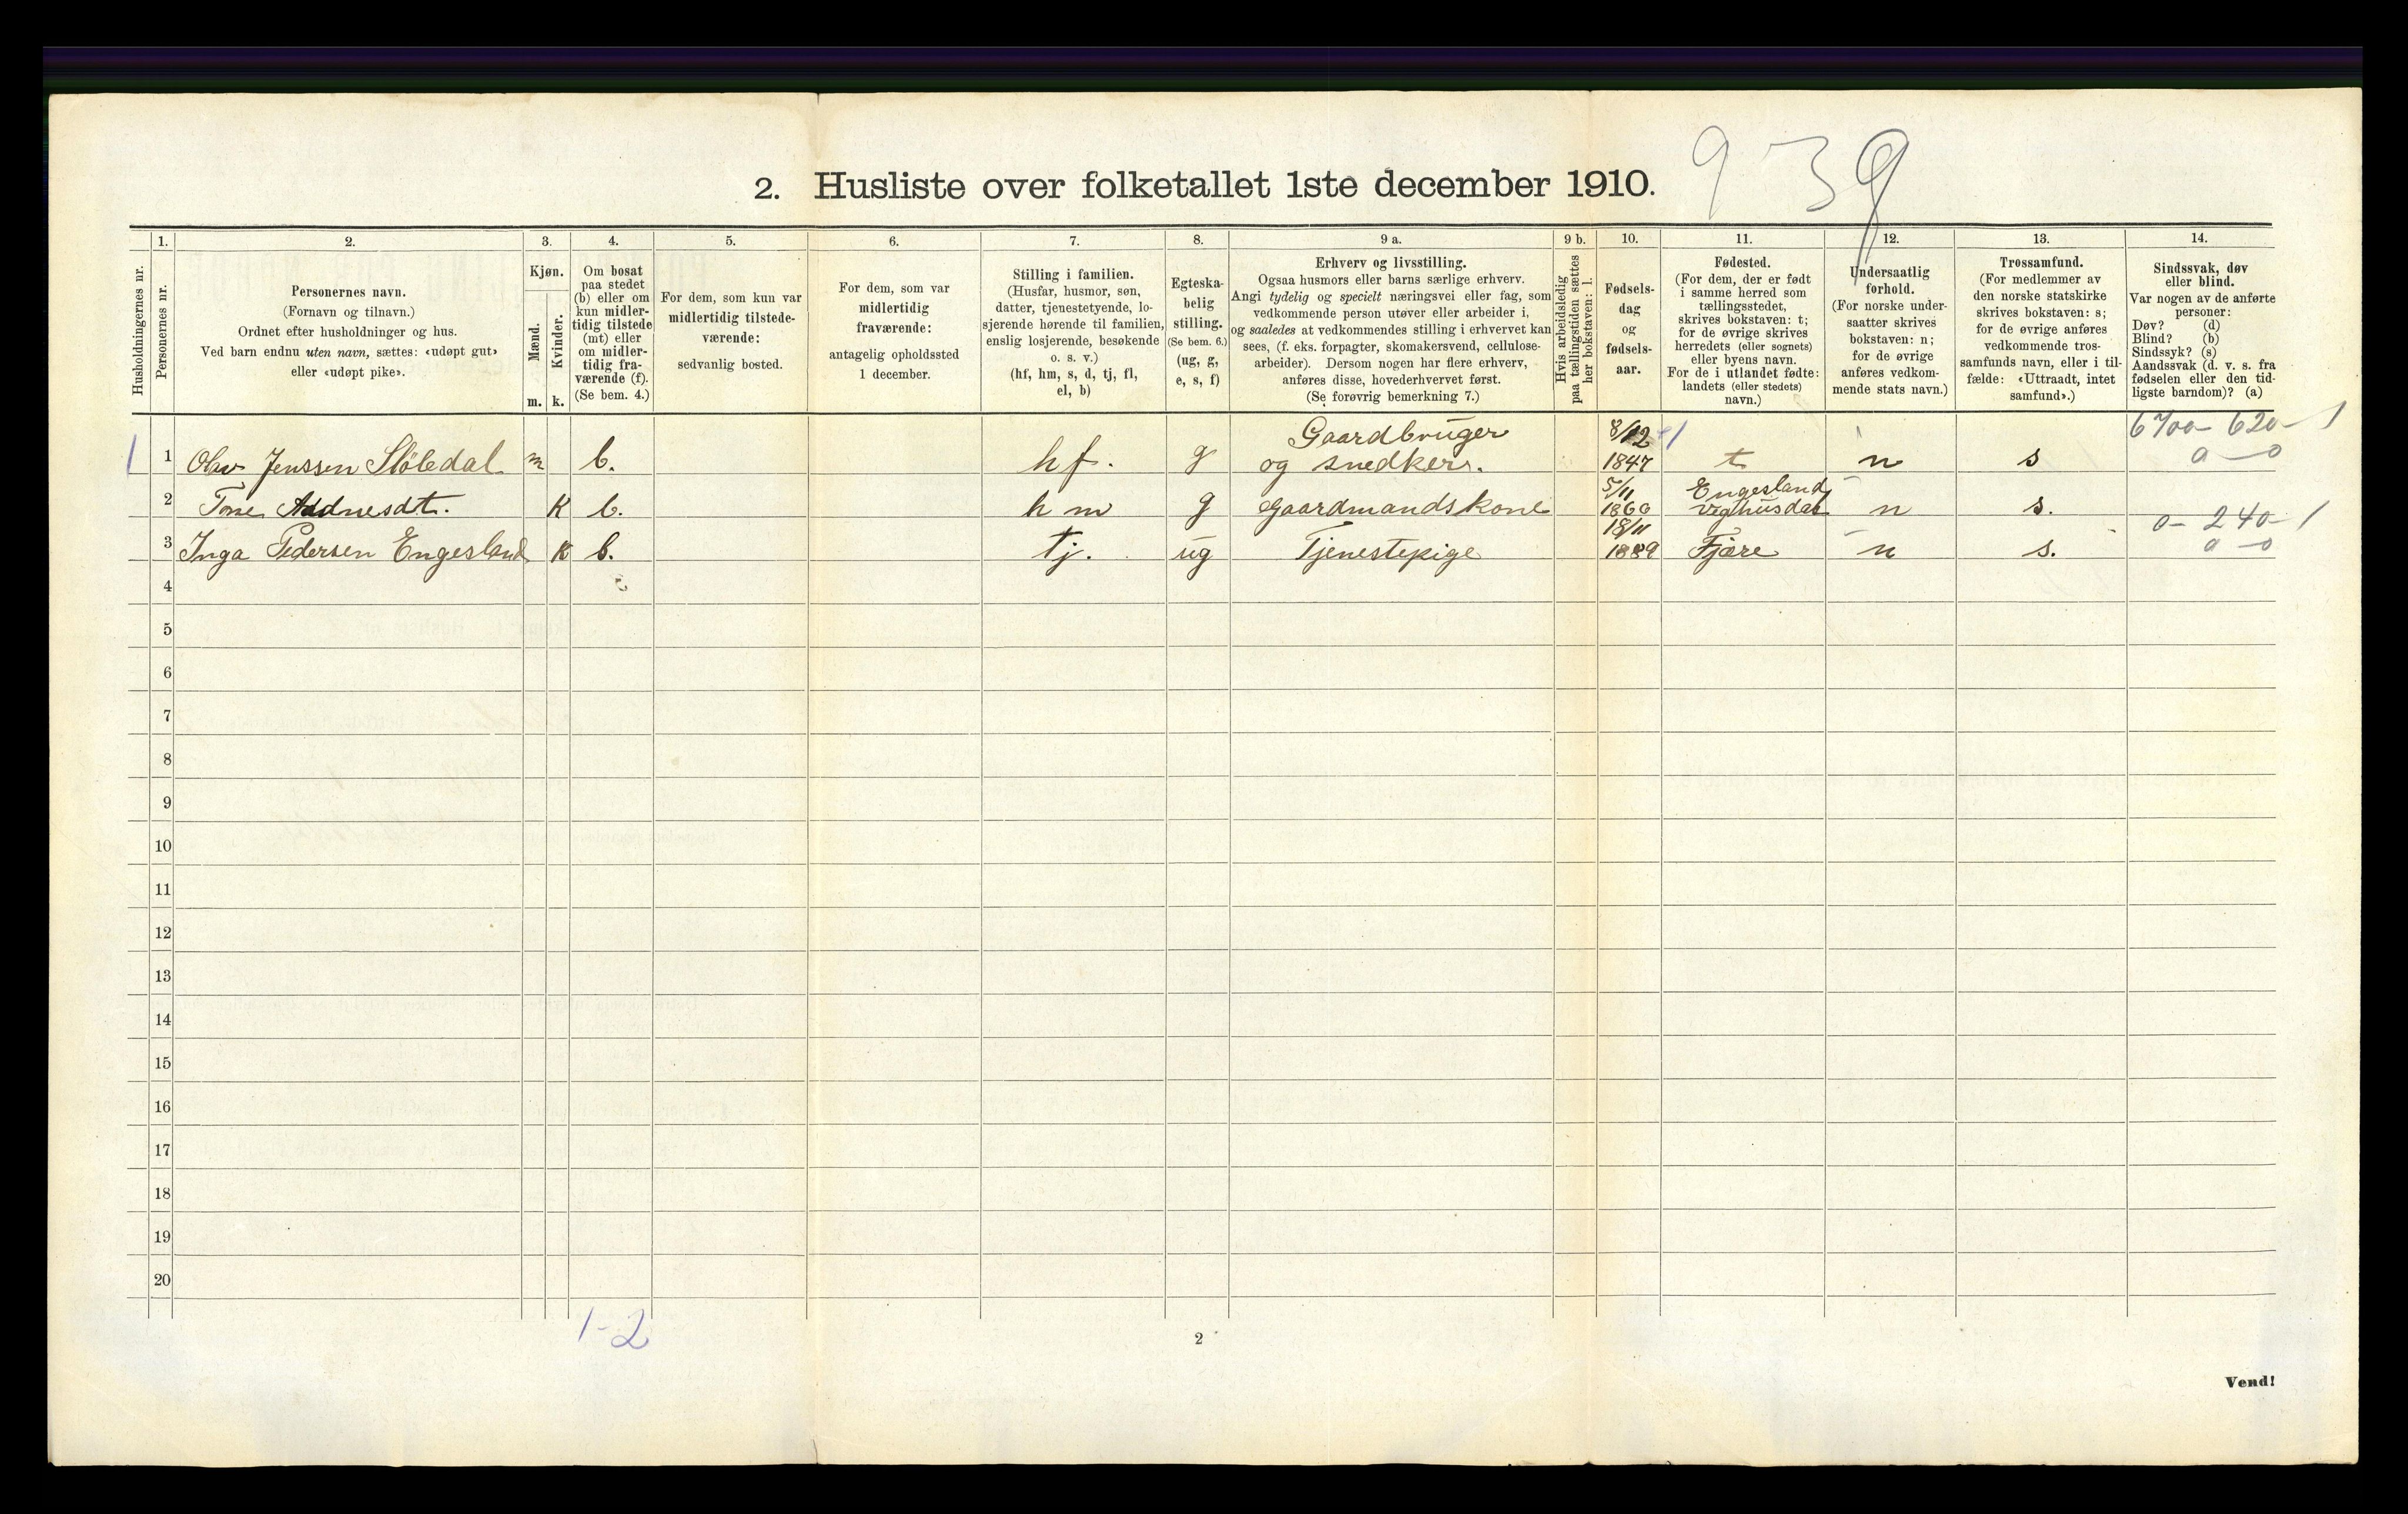 9 3 9
2. Husliste over folketallet 1ste december 1910.
1. 2. 3. 4. 5. 6. 7. 8. 9 a. 9 b. 10. 11. 12. 13. 14.
Husholdningernes nr.
Personernes nr.
Personernes navn.
(Fornavn og tilnavn.)
Ordnet efter husholdninger og hus.
Ved barn endnu uten navn, sættes: «udøpt gut»
eller «udøpt pike».
Kjøn.
Mænd.
Kvinder.
m. k.
Om bosat
paa stedet
(b) eller om
kun midler-
tidig tilstede
(mt) eller
om midler-
tidig fra-
værende (f).
(Se bem. 4.)
For dem, som kun var
midlertidig tilstede-
værende:
sedvanlig bosted.
For dem, som var
midlertidig
fraværende:
antagelig opholdssted
1 december.
Stilling i familien.
(Husfar, husmor, søn,
datter, tjenestetyende, lo-
sjerende hørende til familien,
enslig losjerende, besøkende
o. s. v.)
(hf, hm, s, d, tj, fl,
el, b)
Egteska-
belig
stilling.
(Se bem. 6.)
(ug, g,
e, s, f)
Erhverv og livsstilling.
Ogsaa husmors eller barns særlige erhverv.
Angi tydelig og specielt næringsvei eller fag, som
vedkommende person utøver eller arbeider i,
og saaledes at vedkommendes stilling i erhvervet kan
sees, (f. eks. forpagter, skomakersvend, cellulose-
arbeider). Dersom nogen har flere erhverv,
anføres disse, hovederhvervet først.
(Se forøvrig bemerkning 7.)
Hvis arbeidsledig
paa tællingstiden sættes
her bokstaven: l.
Fødsels-
dag
og
fødsels-
aar.
Fødested.
(For dem, der er født
i samme herred som
tællingsstedet,
skrives bokstaven: t;
for de øvrige skrives
herredets (eller sognets)
eller byens navn.
For de i utlandet fødte:
landets (eller stedets)
navn.)
Undersaatlig
forhold.
(For norske under-
saatter skrives
bokstaven: n;
for de øvrige
anføres vedkom-
mende stats navn.)
Trossamfund.
(For medlemmer av
den norske statskirke
skrives bokstaven: s;
for de øvrige anføres
vedkommende tros-
samfunds navn, eller i til-
fælde: «Uttraadt, intet
samfund».)
Sindssvak, døv
eller blind.
Var nogen av de anførte
personer:
Døv? (d)
Blind? (b)
Sindssyk? (s)
Aandssvak (d. v. s. fra
fødselen eller den tid-
ligste barndom)? (a)
Gaardbruger 8/12 6700- 620- 1
1 1 Olav Jenssen Sløledal m b. hf. g og snedkerr. 1847 t n s a - 0
5/11 Engesland
2 Tone Addnesdt. K b. hm g Gaardmandskone 1860 veghusdal n s.
18/11 0- 240- 1
3 Inga Pedersen Engesland K b. tj. ug Tjenestepige 1889 Fjære n s. a - 0
4
5
6
7
8
9
10
11
12
13
14
15
16
17
18
19
20
1-2
2
Vend!